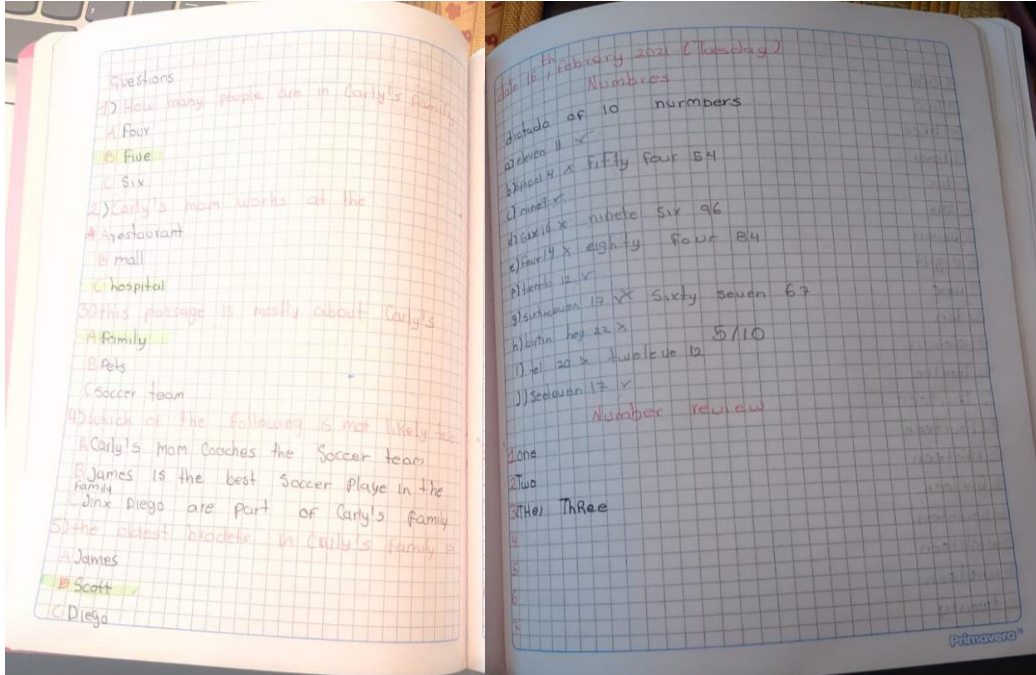 Questions
1) How many people are in Carly's family
A Four
B Five
C Six
2) Carly's mom works at the
A restaurant
B mall
C hospital
3) this passage is mostly about Carly's
A Family
B Pets
C Soccer team
4) which of the following is not likely
A. Carly's mom Coaches the Soccer team
B James is the best Soccer Playe in the
Family
Jinx Diego are part of Carly's family
5) the oldest in Carly's family is
A James
B Scott
C Diego
date 16 th, Febrary 2021 (Tuesday)
Numbres
dictado of 10 nurmbers
a) eleven 11 ✓
b) 4 x Fifty Four 54
c) nine9 ✓
d) six16 x six 96
e) four14 x eighty Four 84
12 ✓
g) 17 x Sixty seven 67
h) hey 22 x
5/10
i) tel 20 x tweleve 12
j) Seeloven 17 ✓
Number review
1 one
2 Two
3 THe) ThRee
4
5
6
7
Primavera